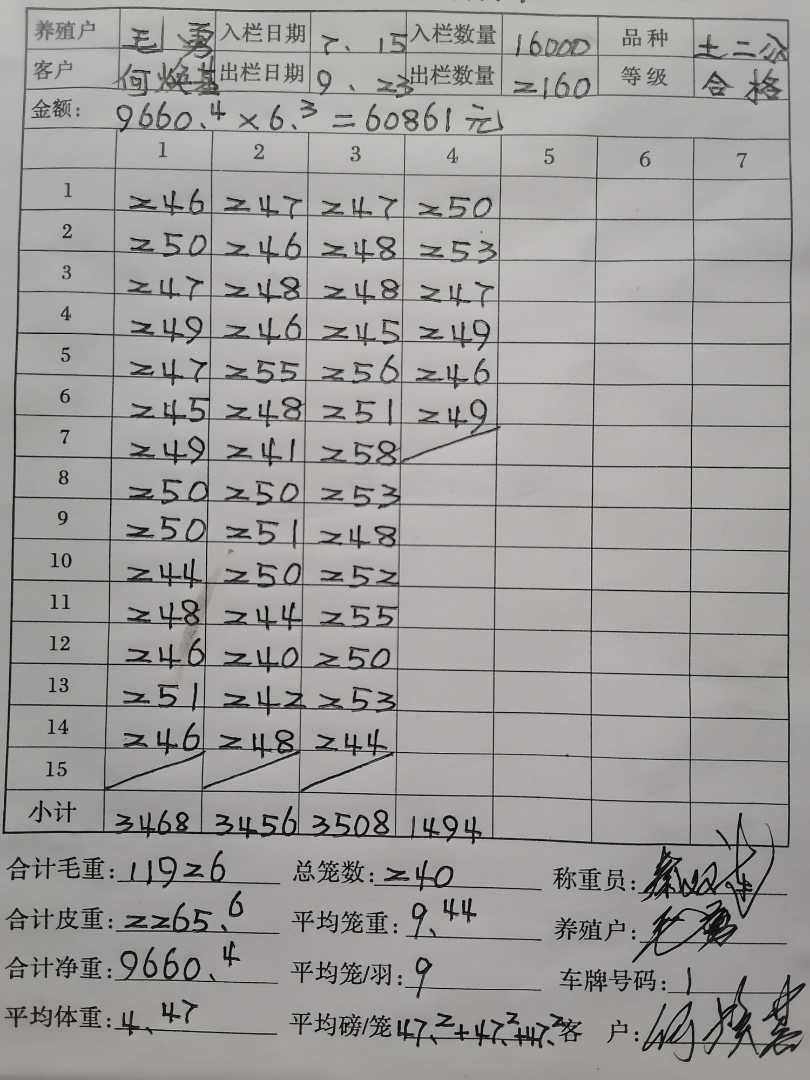 养殖户 毛勇 入栏日期 7、15 入栏数量 16000 品种 土二
客户 何焕基 出栏日期 9、23 出栏数量 2160 等级 合格
金额: 9660.4 × 6.3 = 60861元
1 2 3 4 5 6 7
1 246 247 247 250
2 250 246 248 253
3 247 248 248 247
4 249 246 245 249
5 247 255 256 246
6 245 248 251 249
7 249 241 258
8 250 250 253
9 250 251 248
10 244 250 252
11 248 244 255
12 246 240 250
13 251 242 253
14 246 248 244
15
小计 3468 3456 3508 1494
合计毛重: 11926 总笼数: 240 称重员:
合计皮重: 2265.6 平均笼重: 9.44 养殖户: 毛勇
合计净重: 9660.4 平均笼/羽: 9 车牌号码: 1
平均体重: 4、47 平均磅/笼 47.2+47.2+47.2 客 户: 何焕基